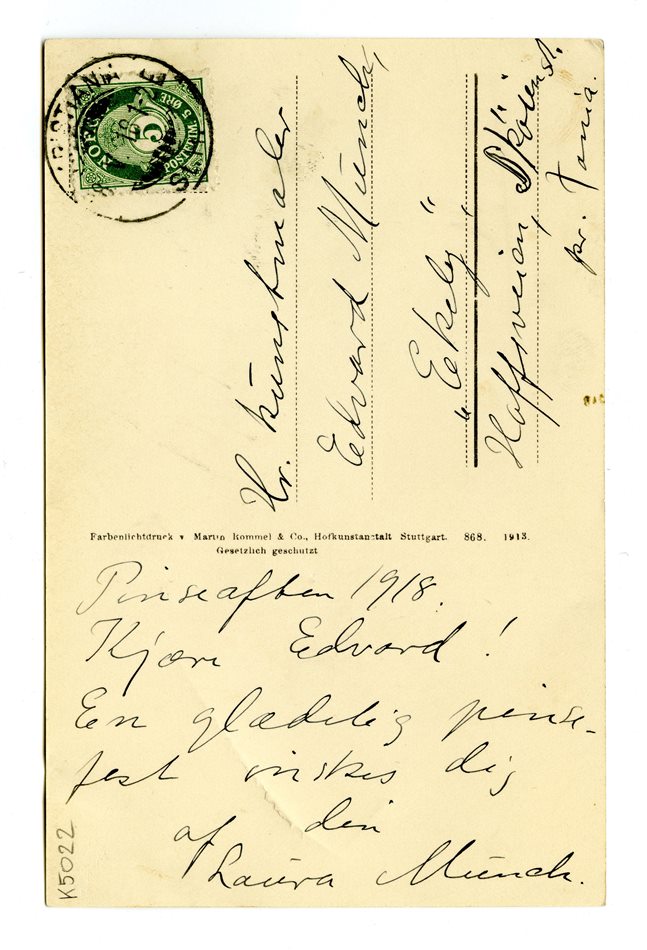 NORGE
POSTFRIM. 5 ØRE
5
Hr. kunstmaler
Edvard Münch,
"Ekely"
Hoffsveien, Skøienst.
pr. Fania.
Farbenlichtdruck v Martin Rommel & Co., Hofkunstanstalt Stuttgart. 868. 1913.
Gesetzlich geschützt
Pinseaften 1918.
Kjære Edvard!
En glædelig pinse-
fest ønskes dig
af din
Laura Münch.
K5022